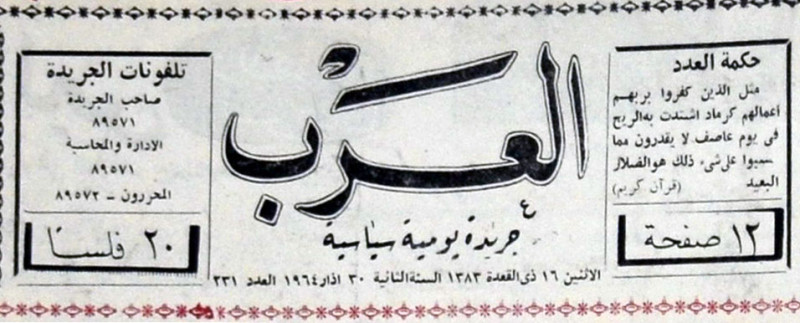 حكمة العدد
مثل الذين كفروا بربهم
أعمالهم كرماد اشتدت به الريح
فى يوم عاصف لا يقدرون مما
كسبوا على شىء ذلك هو الضلال
البعيد (قرآن كريم)
١٢ صفحة
العرب
جريدة يومية سياسية
الاثنين ١٦ ذى القعدة ١٣٨٣ السنة الثانية ٣٠ اذار ١٩٦٤ العدد ٢٣١
تلفونات الجريدة
صاحب الجريدة
٨٩٥٧١
الادارة والمحاسبة
٨٩٥٧١
المحررون - ٨٩٥٧٢
٢٠ فلسًا